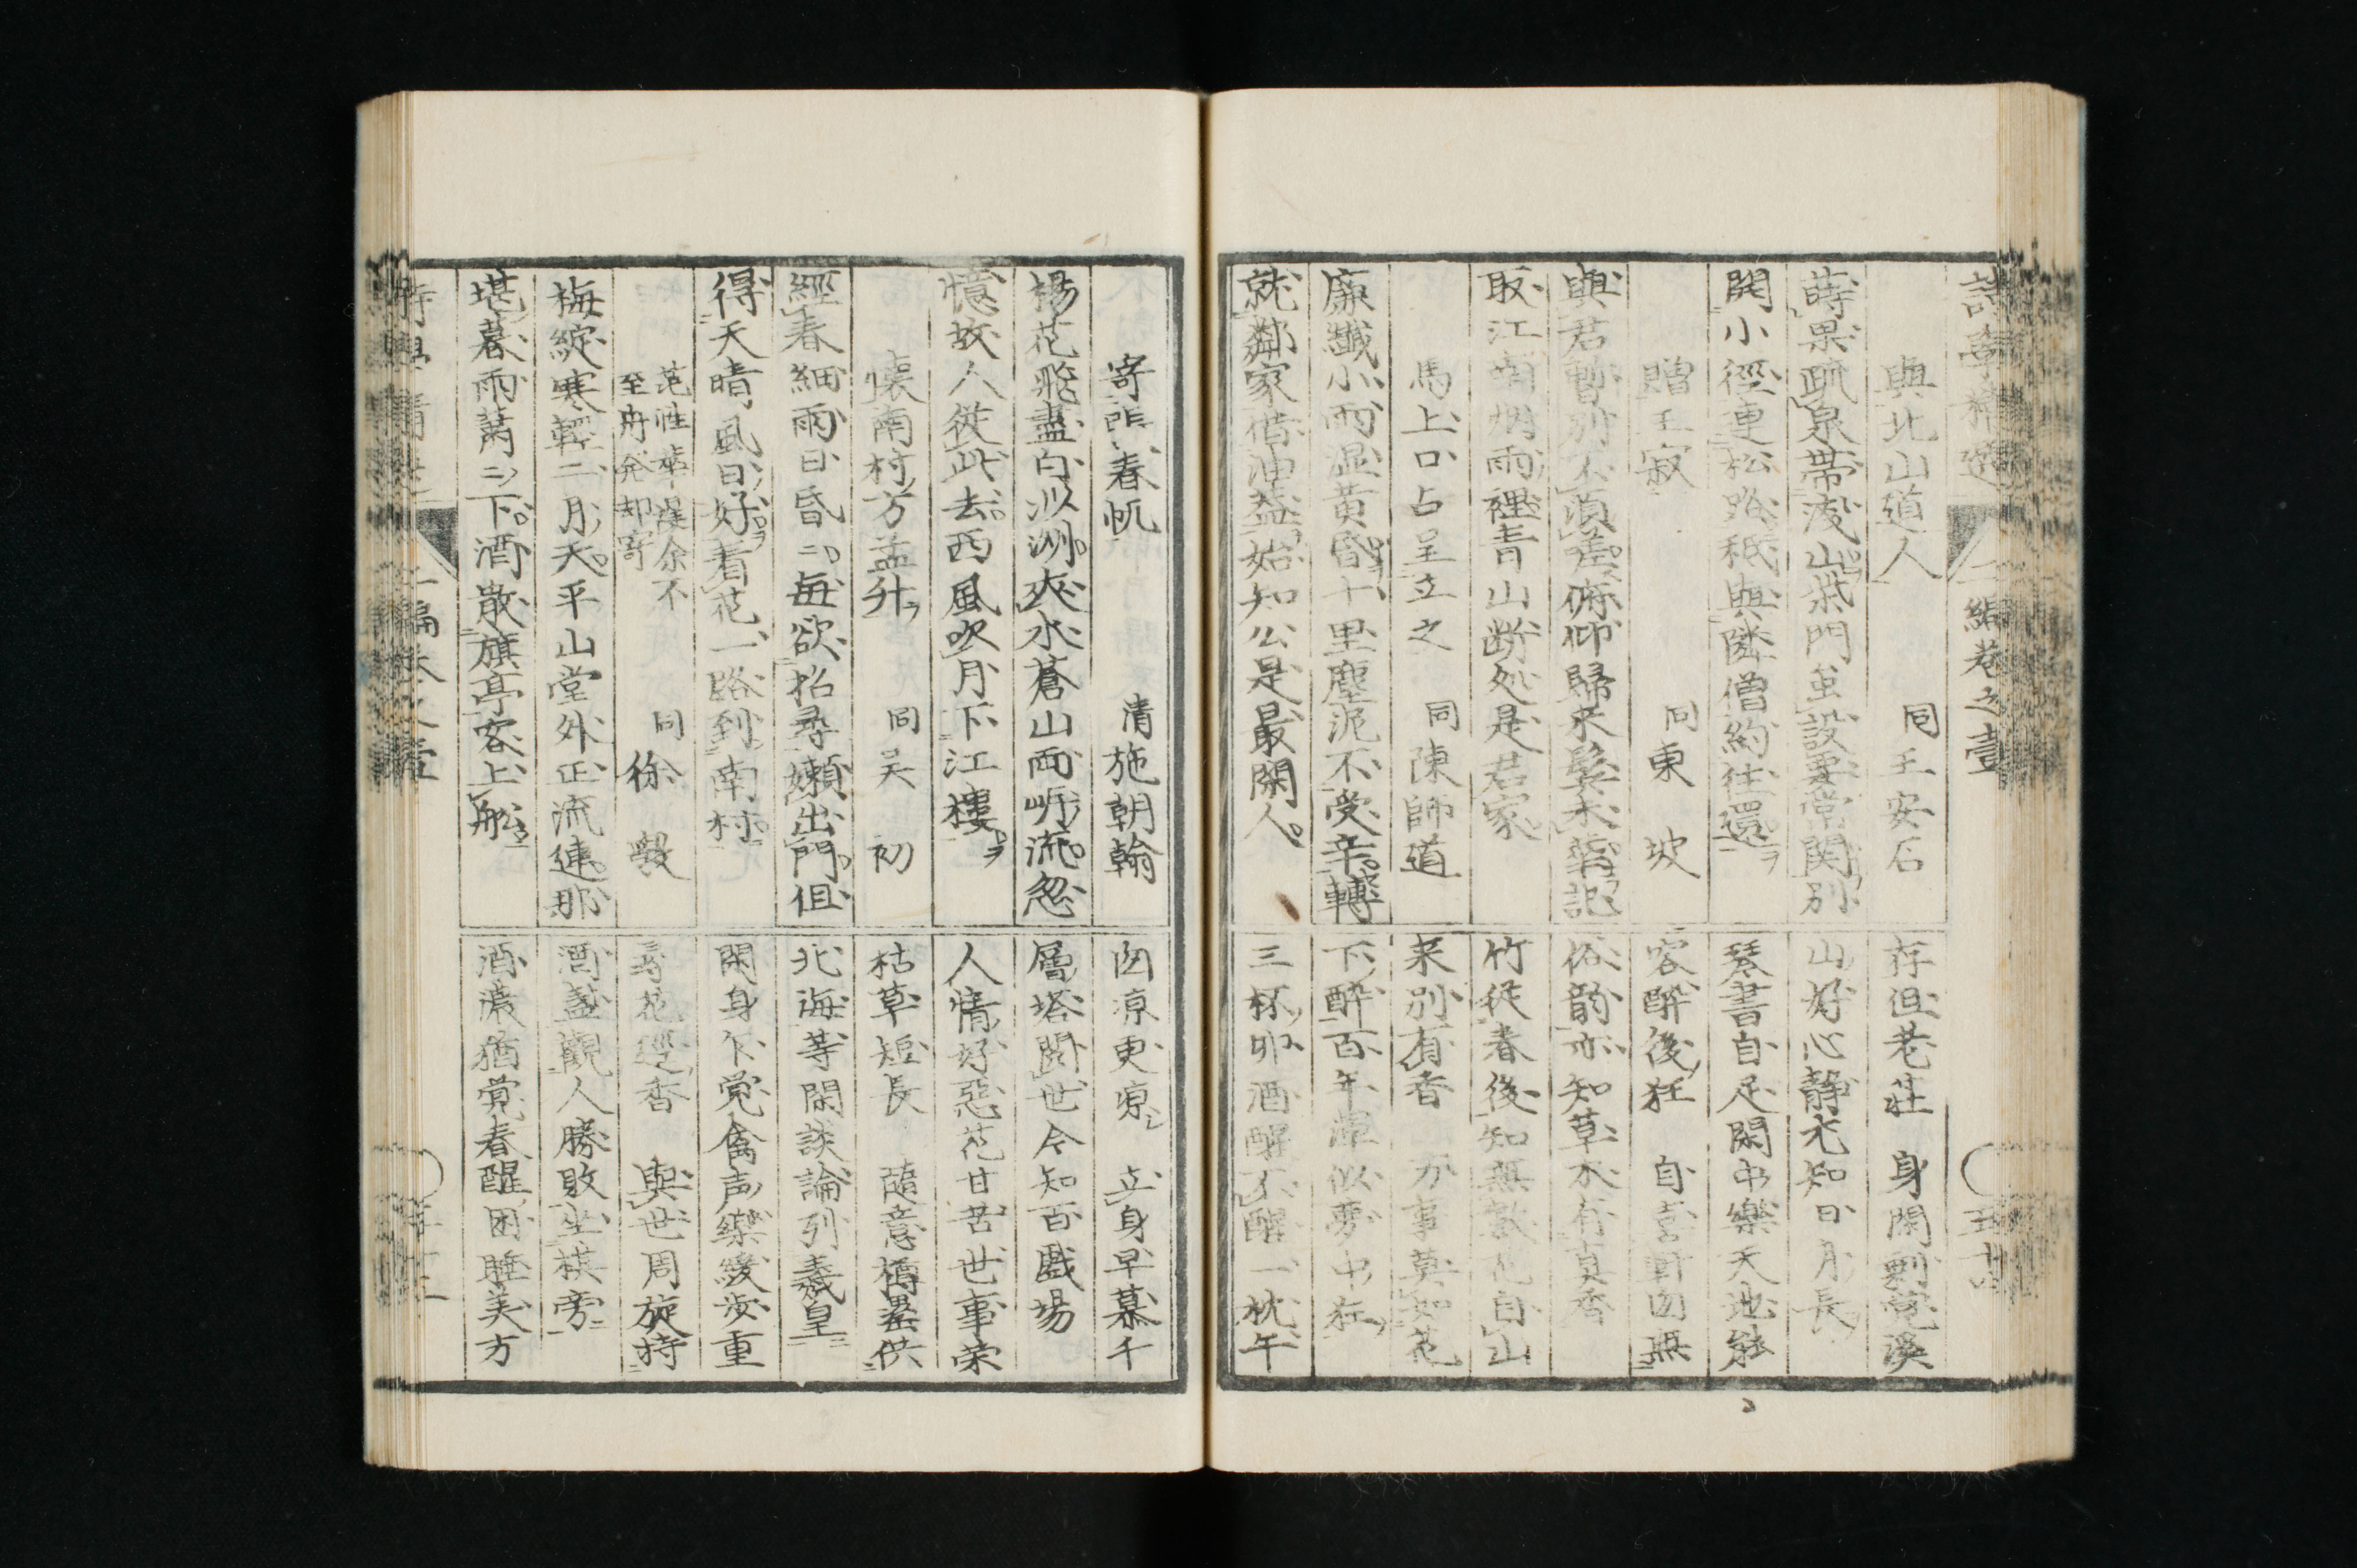 與北山道人
同王安石
蒔果疏泉帯浅山柴門虽設要常関別
開小徑連松路秖與隣僧約往還
贈王寂
同東坡
與君暫別不須嗟俯仰歸来鬂未華記
取江南烟雨裡青山断処是君家
馬上口占呈立之
同陳師道
廉纖小雨湿黄昏十里塵泥不受辛轉
就鄰家借油盖始知公是最閑人
存但老荘　身閑剰覚溪
山好心静尤知日月長
琴書自足閑中樂天地能
容醉後狂　自喜軒囱無
俗韵亦知草木有真香
竹従春後知無数花自山
来別有香　万事莫如花
下醉百年渾似夢中狂
三杯卯酒醒不醒一枕午
寄　春帆
清施朝翰
楊花飛盡白沙洲夾水蒼山両岸流忽
憶故人従此去西風吹月下江樓
懐南村方孟升
同吴初
經春細雨日昏〻毎欲招尋嬾出門但
得天晴風日好看花一路到南村
同徐毅
梅綻寒輕二月天平山堂外正流連那
堪暮雨蕭〻下酒散旗亭客上舩
囱凉更凉　立身早慕千
層塔閲世今知百戯場
人情好惡花甘苦世事栄
枯草短長　隨意樽罍供
北海等閑談論列義皇
閑身乍覚禽声樂緩歩重
尋花逕香　與世周旋持
酒盞觀人勝敗坐棋旁
酒濃猶覚春醒困睡美方